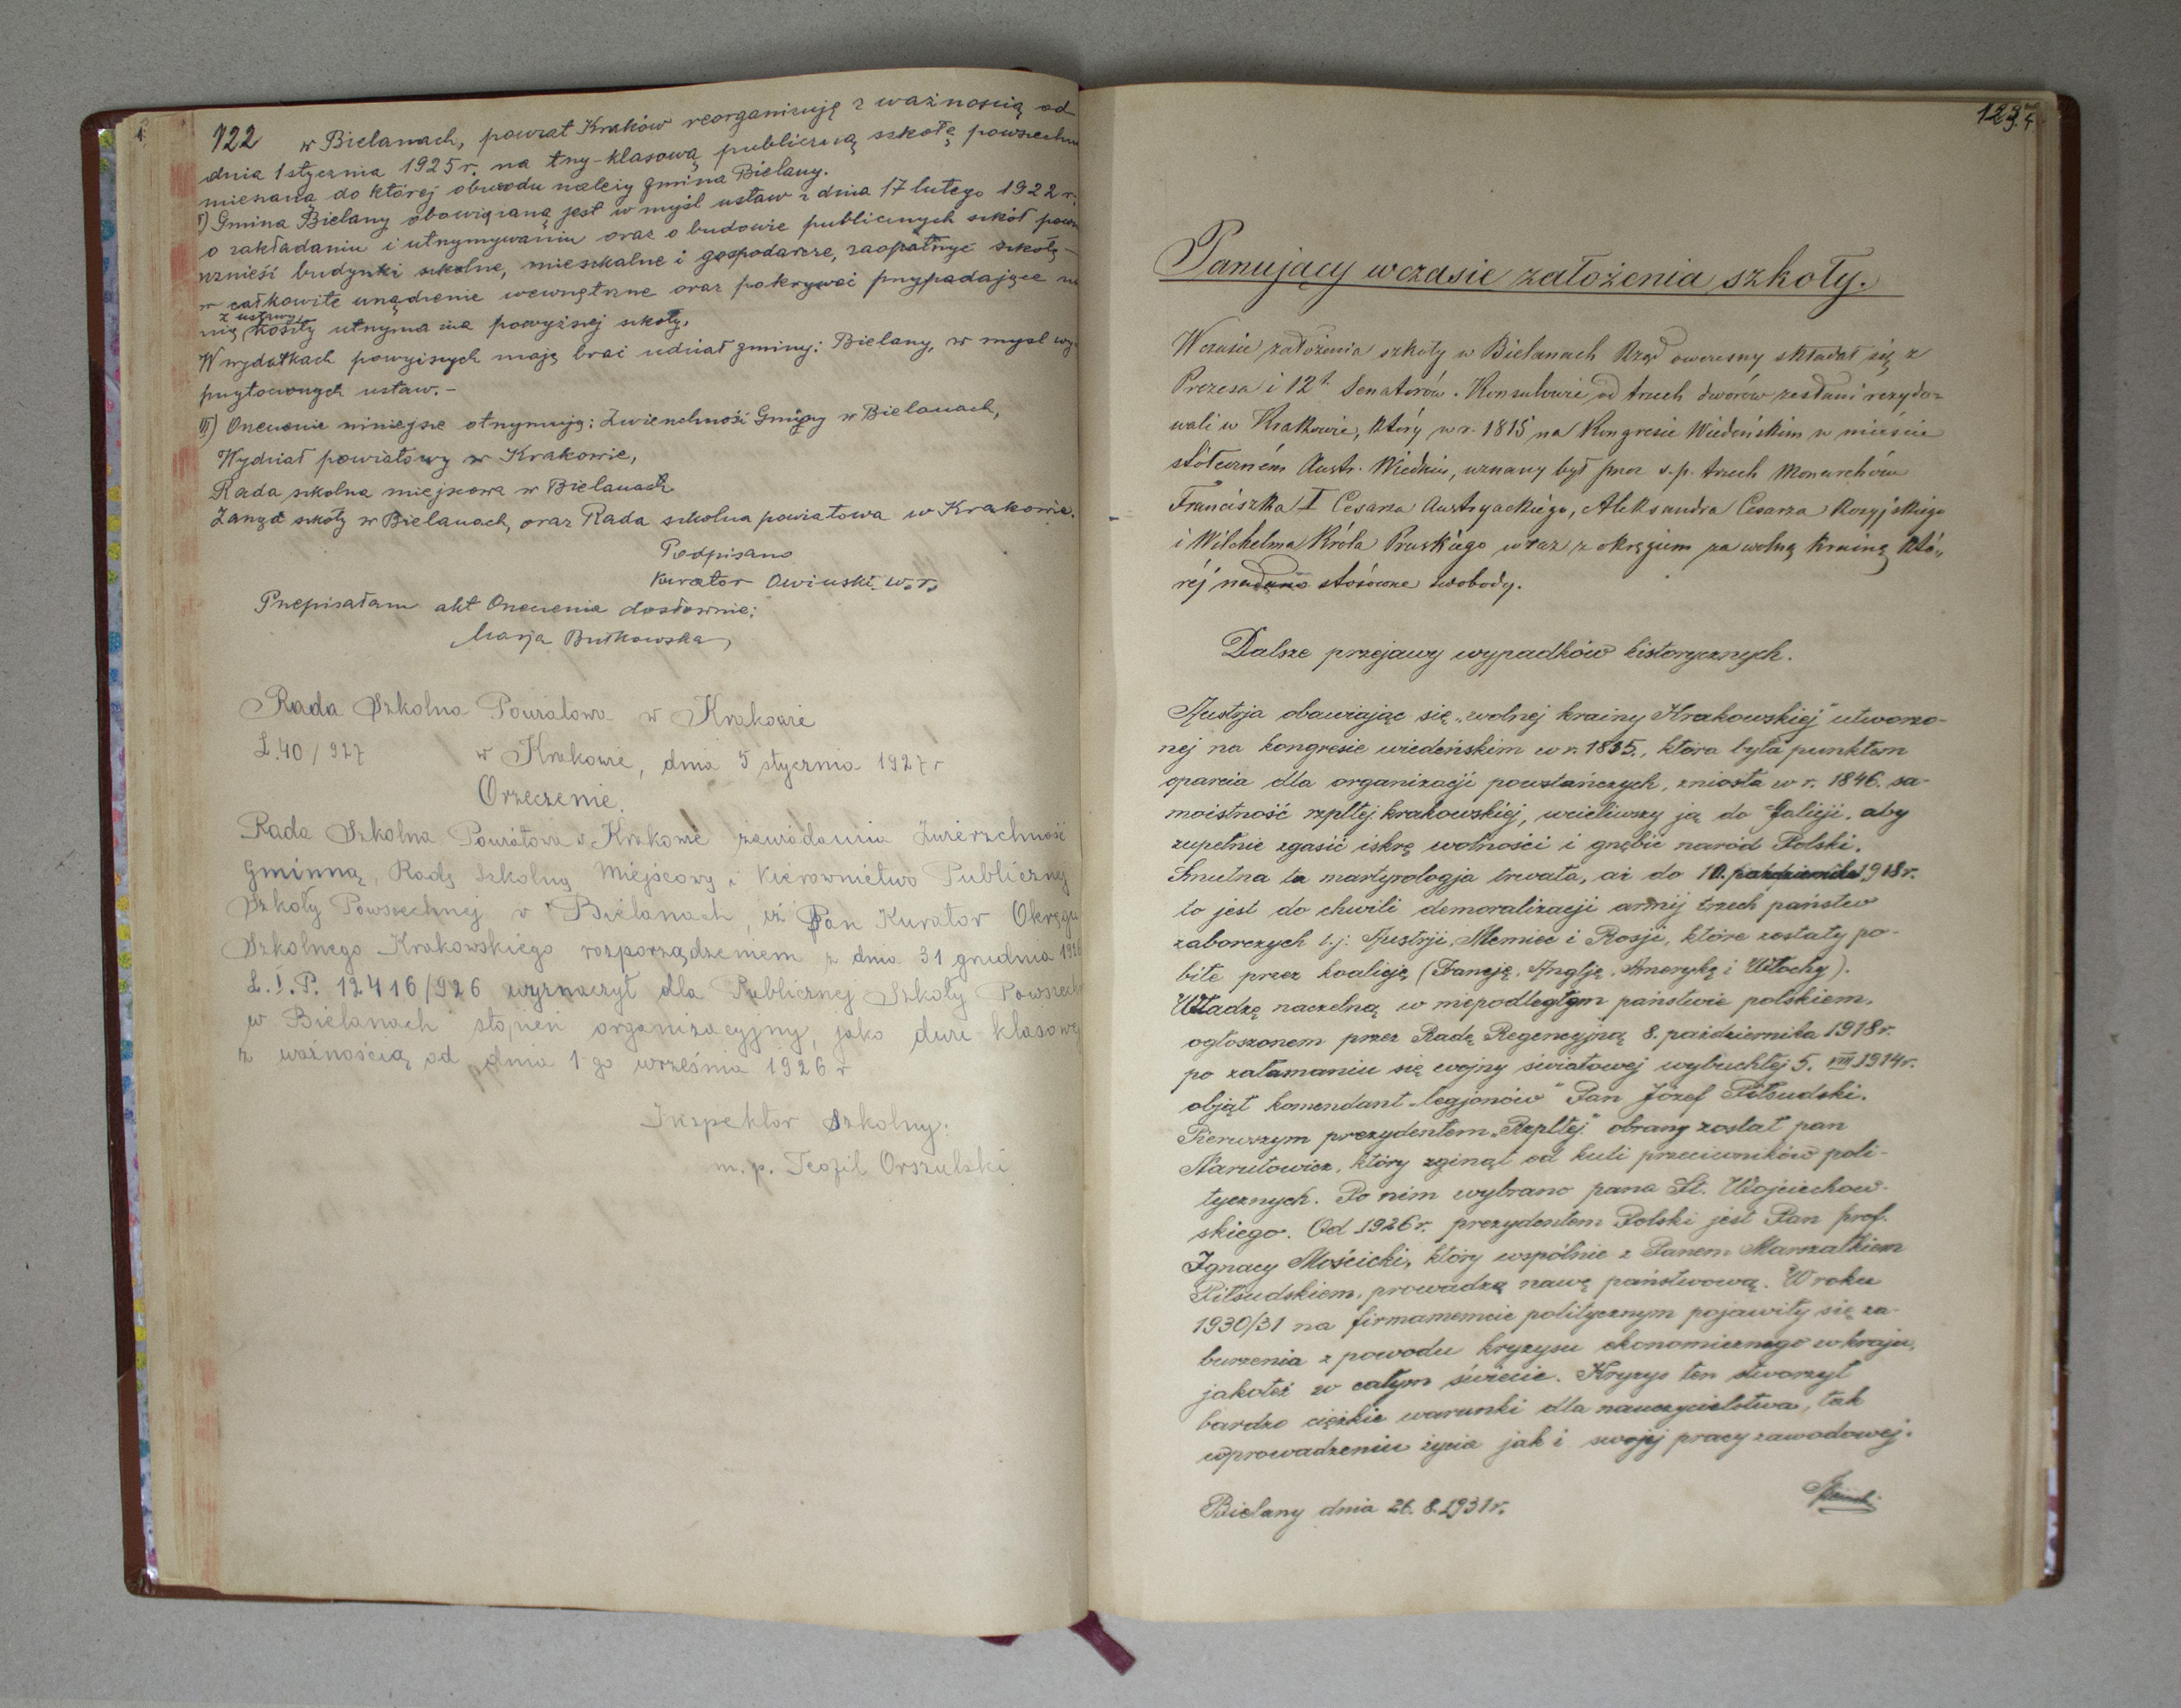 122 w Bielanach, powiat Kraków reorganizuję z ważnością od
dnia 1 stycznia 1925 r. na trzy-klasową publiczną szkołę powszechn
mieszaną do której obwodu należy gmina Bielany.
Gmina Bielany obowiązaną jest w myśl ustaw z dnia 17 lutego 1922 r.
o zakładaniu i utrzymywaniu oraz o budowie publicznych szkół pow
wznieść budynki szkolne, mieszkalne i gospodarcze, zaopatrzyć szkołę
w całkowite urządzenie wewnętrzne oraz pokrywać przypadające na
z ustawy
nią koszty utrzymania powyższej szkoły.
W wydatkach powyższych mają brać udział gminy: Bielany, w myśl wy
przytoczonych ustaw.-
III) Orzeczenie niniejsze otrzymują: Zwierzchność Gminy w Bielanach,
Wydział powiatowy w Krakowie,
Rada szkolna miejscowa w Bielanach
Zarząd szkoły w Bielanach, oraz Rada szkolna powiatowa w Krakowie.
Podpisano
Kurator Owiński w.r.
Przepisałam akt Orzeczenia dosłownie:
Marja Butkowska
Rada Szkolna Powiatowa w Krakowie
L.40/927 w Krakowie, dnia 5 stycznia 1927 r
Orzeczenie.
Rada Szkolna Powiatowa w Krakowie zawiadamia Zwierzchność
Gminną, Radę Szkolną Miejscową i Kierownictwo Publicznej
Szkoły Powszechnej w Bielanach, iż Pan Kurator Okręgu
Szkolnego Krakowskiego rozporządzeniem z dnia 31 grudnia 1926
L.I.P. 12416/926 wyznaczył dla Publicznej Szkoły Powszech
w Bielanach stopień organizacyjny, jako dwu-klasowej
z ważnością od dnia 1-go września 1926 r
Inspektor Szkolny:
m.p. Teofil Orszulski
123.
Panujący wczasie założenia szkoły.
Wczasie założenia szkoły w Bielanach Rząd owczesny składał się z
Prezesa i 12t Senatorów. Konsulowie od trzech dworów zesłani rezydo=
wali w Krakowie, który w r. 1815 na Kongresie Wiedeńskim w mieście
stółeczném Austr. Wiedniu, uznany był przez ś.p. trzech Monarchów
Franciszka I Cesarza Austryackiégo, Aleksandra Cesarza Rosyjskiégo
i Wilchelma Króla Pruskiégo wraz z okręgiem za wolną krainę któ„
réj nadano stósowne swobody.
Dalsze przejawy wypadków historycznych.
Austrja obawiając się „wolnej krainy Krakowskiej” utworzo-
nej na kongresie wiedeńskim w r. 1815., która była punktem
oparcia dla organizacji powstańczych, zniosła w r. 1846. sa-
moistność rzpltej krakowskiej, wcieliwszy ją do Galicji, aby
zupełnie zgasić iskrę wolności i gnębić naród Polski.
Smutna ta martyrologja trwała, aż do 10. października 1918 r.
to jest do chwili demoralizacji armij trzech państw
zaborczych t.j. Austrji, Niemiec i Rosji, które zostały po-
bite przez koalicję (Francję, Anglję, Amerykę i Włochy).
Władzę naczelną w niepodległym państwie polskiem,
ogłoszonem przez Radę Regencyjną 8. października 1918 r.
po załamaniu się wojny światowej wybuchłej 5. VIII 1914 r.
objął komendant „legjonów” Pan Józef Piłsudski.
Pierwszym prezydentem „Rzpltej” obrany został pan
Narutowicz, który zginął od kuli przeciwników poli-
tycznych. Po nim wybrano pana St. Wojciechow-
skiego. Od 1926 r. prezydentem Polski jest Pan prof.
Ignacy Mościcki, który wspólnie z Panem Marszałkiem
Piłsudskiem, prowadzą nawę państwową. W roku
1930/31 na firmamencie politycznym pojawiły się za-
burzenia z powodu kryzysu ekonomicznego w kraju,
jakoteż w całym świecie. Kryzys ten stworzył
bardzo ciężkie warunki dla nauczycielstwa, tak
wprowadzeniu życia jak i swojej pracy zawodowej.
Bielany dnia 26. 8. 1931 r.